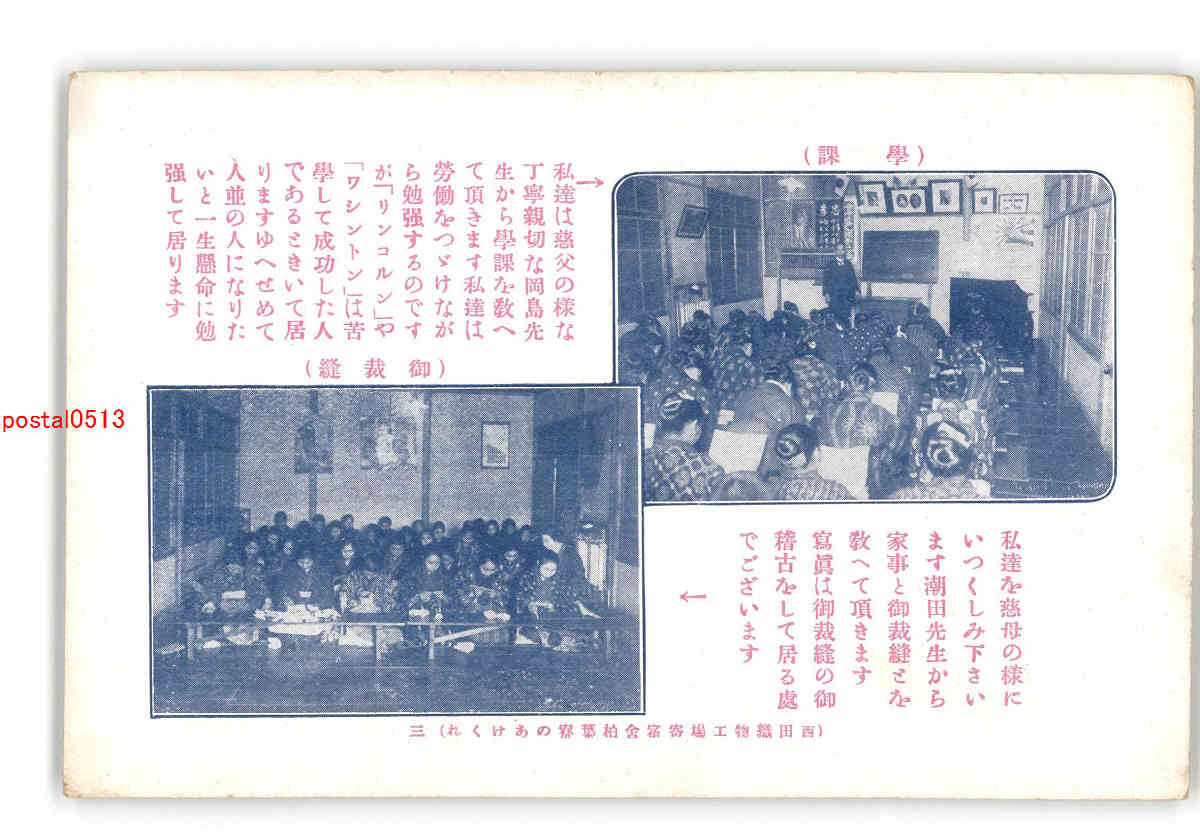 (學課)
私達は慈父の樣な
丁寧親切な岡島先
生から學課を敎へ
て頂きます私達は
勞働をつゞけなが
ら勉强するのです
が「リンコルン」や
「ワシントン」は苦
學して成功した人
であるときいて居
りますゆへせめて
人並の人になりた
いと一生懸命に勉
强して居ります
(御裁縫)
私達を慈母の樣に
いつくしみ下さい
ます潮田先生から
家事と御裁縫とを
敎へて頂きます
寫眞は御裁縫の御
稽古をして居る處
でございます
(西田織物工場寄宿舍柏葉寮のあけくれ)三
postal0513